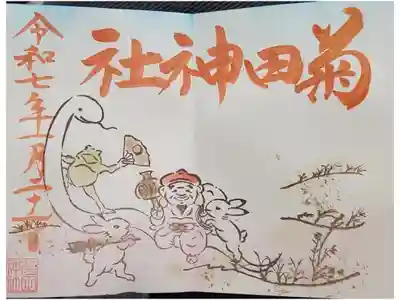 菊田神社
令和七年一月二十一日